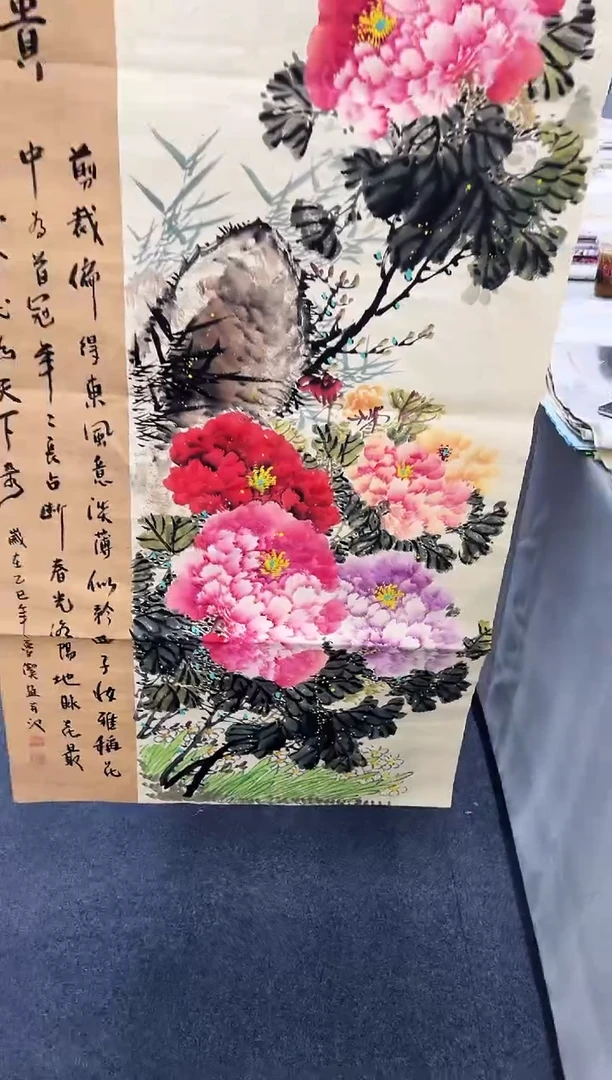 貴
剪裁偏得東風意淡薄似矜西子妆雅稱花
中为首冠年〻長占断春光洛陽地脉花最
为天下奇
歲在乙巳年